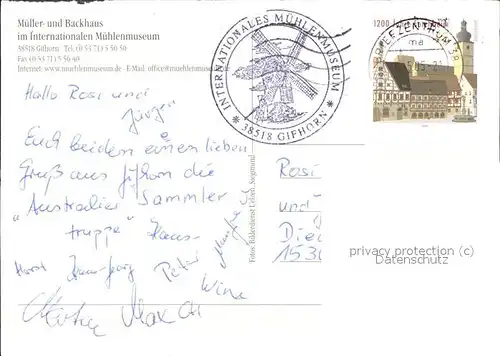 Müller- und Backhaus
im Internationalen Mühlenmuseum
38518 Gifhorn Tel. (0 53 71) 5 50 50
Fax (0 53 71) 5 56 40
Internet: www.muehlenmuseum.de E-Mail: office@muehlenmuse
INTERNATIONALES MÜHLENMUSEUM
38518 GIFHORN
1200
BRIEFZENTRUM 38
ma
Hallo Rosi und
Jürgen
Euch beiden einen lieben
Gruß aus Gifhorn die
"Australier Sammler
truppe" Hans-
Horst Hans-Jörg Peter
Fotos: Bilderdienst Lefeld, Siegmund
Rosi
und
Die
153
privacy protection (c)
Datenschutz